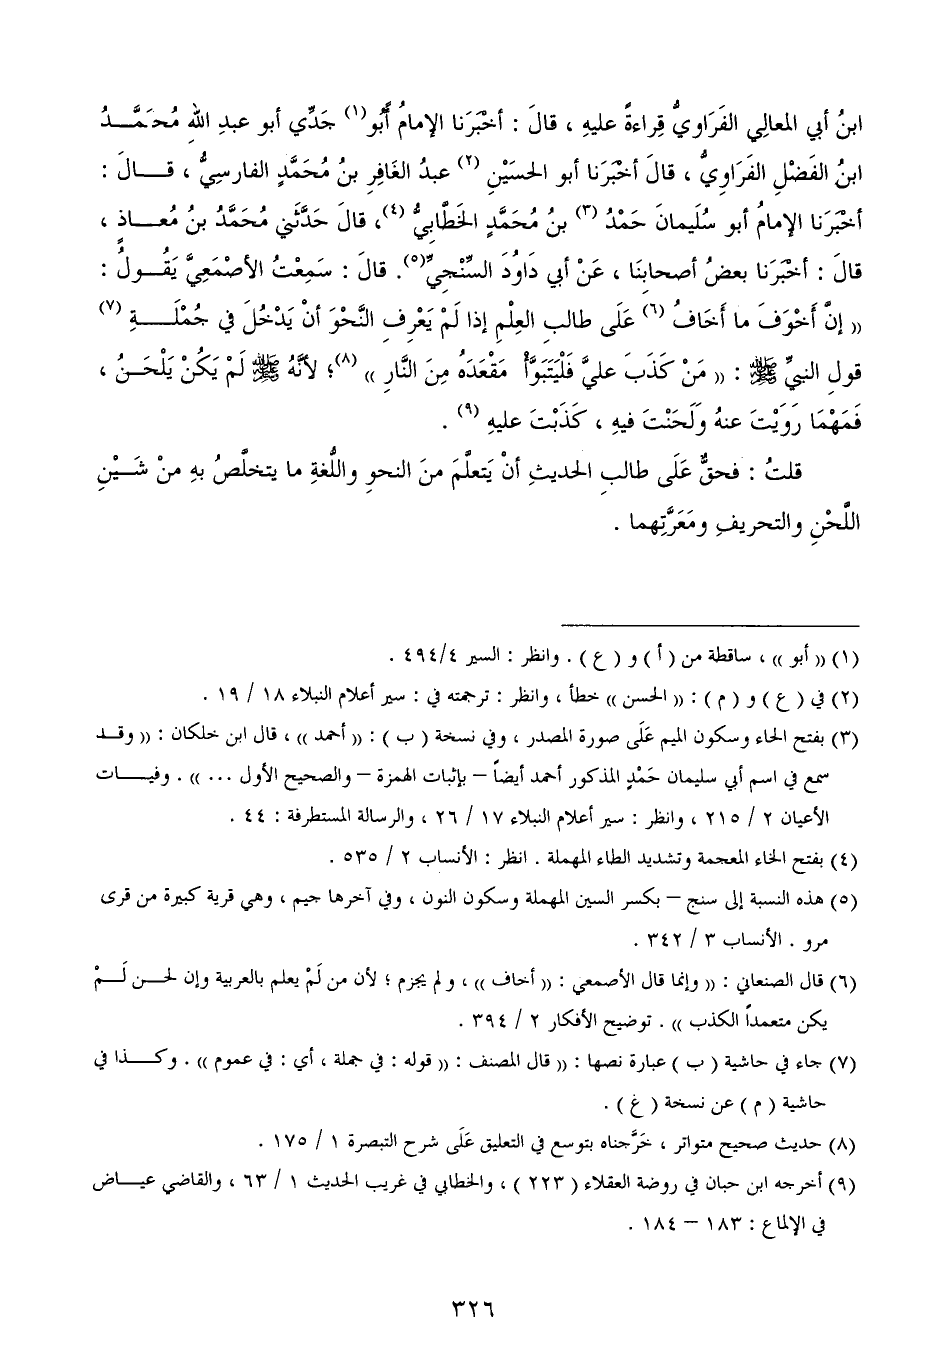 ابنُ أبي المعالِي الفَرَاويُّ قِراءةً عليهِ ، قالَ : أخْبَرَنا الإمامُ أبُو(١) جَدِّي أبو عبدِ اللهِ مُحَمَّدُ
ابنُ الفَضْلِ الفَرَاوِيُّ ، قالَ أخْبَرَنا أبو الحسَيْنِ (٢) عبدُ الغَافِرِ بنُ مُحَمَّدٍ الفارسِيُّ ، قالَ :
أخْبَرَنا الإمامُ أبو سُلَيمانَ حَمْدُ (٣) بنُ مُحَمَّدٍ الخَطَّابيُّ (٤)، قالَ حدَّثَنِي مُحَمَّدُ بنُ مُعاذٍ ،
قالَ : أخْبَرَنا بعضُ أصحابِنَا ، عَنْ أبي دَاودَ السِّنْجيِّ(٥). قالَ : سَمِعْتُ الأصْمَعِيَّ يَقُولُ :
(( إنَّ أَخْوَفَ ما أَخَافُ (٦) عَلَى طالبِ العِلْمِ إذا لَمْ يَعْرِفِ النَّحْوَ أنْ يَدْخُلَ في جُمْلَةِ (٧)
قولِ النبيِّ ﷺ : (( مَنْ كَذَبَ عليَّ فَلْيَتَبَوَّأْ مَقْعَدَهُ مِنَ النَّارِ )) (٨)؛ لأنَّهُ ﷺ لَمْ يَكُنْ يَلْحَنُ ،
فَمَهْمَا رَوَيْتَ عنهُ ولَحَنْتَ فيهِ ، كَذَبْتَ عليهِ (٩) .
قلتُ : فحقٌّ عَلَى طالبِ الحديثِ أنْ يَتعلَّمَ منَ النحوِ واللُّغةِ ما يتخلَّصُ بهِ منْ شَيْنِ
اللَّحْنِ والتحريفِ ومَعَرَّتِهما .
(١) (( أبو )) ، ساقطة من ( أ ) و ( ع ) . وانظر : السير ٤/٤٩٤ .
(٢) في ( ع ) و ( م ) : (( الحسن )) خطأ ، وانظر : ترجمته في : سير أعلام النبلاء ١٨ / ١٩ .
(٣) بفتح الحاء وسكون الميم عَلَى صورة المصدر ، وفي نسخة ( ب ) : (( أحمد )) ، قال ابن خلكان : (( وقد
سمع في اسم أبي سليمان حَمْدٍ المذكور أحمد أيضاً – بإثبات الهمزة – والصحيح الأول ... )) . وفيات
الأعيان ٢ / ٢١٥ ، وانظر : سير أعلام النبلاء ١٧ / ٢٦ ، والرسالة المستطرفة : ٤٤ .
(٤) بفتح الخاء المعجمة وتشديد الطاء المهملة . انظر : الأنساب ٢ / ٥٣٥ .
(٥) هذه النسبة إلى سنج – بكسر السين المهملة وسكون النون ، وفي آخرها جيم ، وهي قرية كبيرة من قرى
مرو . الأنساب ٣ / ٣٤٢ .
(٦) قال الصنعاني : (( وإنما قال الأصمعي : (( أخاف )) ، ولم يجزم ؛ لأن من لَمْ يعلم بالعربية وإن لحن لَمْ
يكن متعمداً الكذب )) . توضيح الأفكار ٢ / ٣٩٤ .
(٧) جاء في حاشية ( ب ) عبارة نصها : (( قال المصنف : (( قوله : في جملة ، أي : في عموم )) . وكذا في
حاشية ( م ) عن نسخة ( غ ) .
(٨) حديث صحيح متواتر ، خَرَّجناه بتوسع في التعليق عَلَى شرح التبصرة ١ / ١٧٥ .
(٩) أخرجه ابن حبان في روضة العقلاء ( ٢٢٣ ) ، والخطابي في غريب الحديث ١ / ٦٣ ، والقاضي عياض
في الإلماع : ١٨٣ – ١٨٤ .
٣٢٦